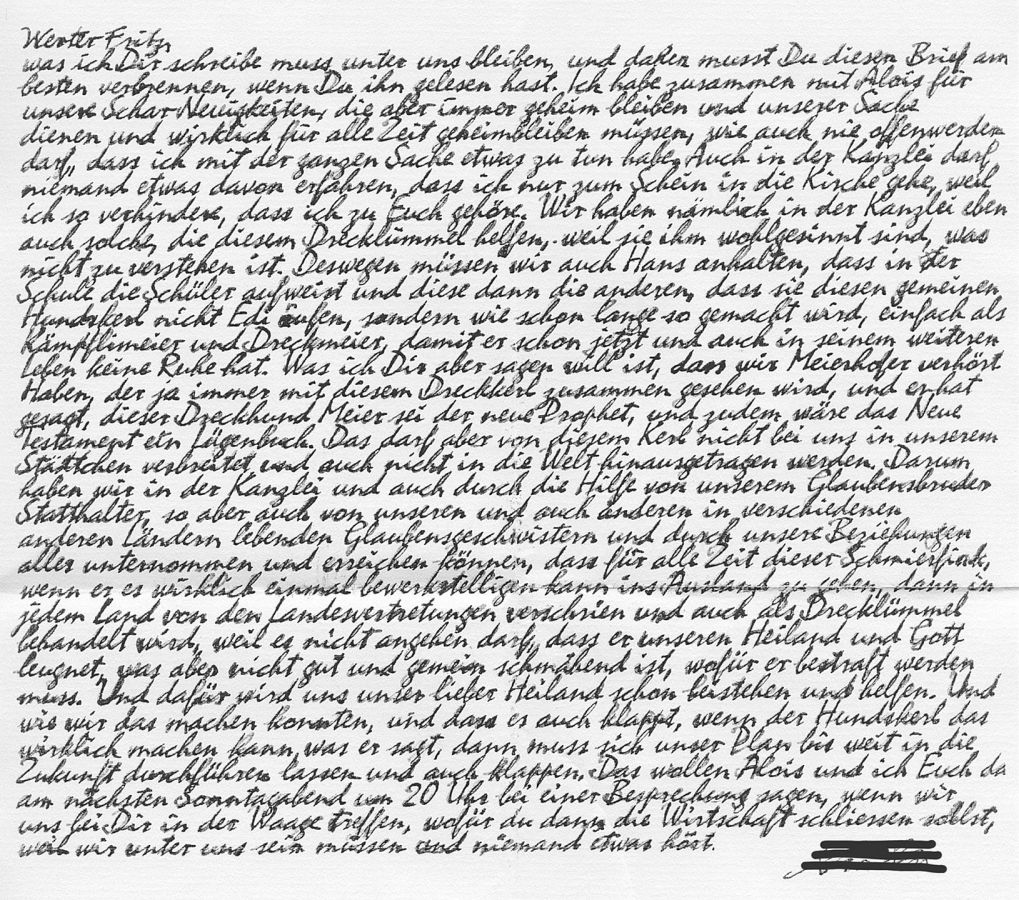 Werter Fritz,
was ich Dir schreibe muss unter uns bleiben, und daher musst Du diesen Brief am
besten verbrennen, wenn Du ihn gelesen hast. Ich habe zusammen mit Alois für
unsere Schar Neuigkeiten, die aber immer geheim bleiben und unserer Sache
dienen und wirklich für alle Zeit geheimbleiben müssen, wie auch nie offenwerden
darf, dass ich mit der ganzen Sache etwas zu tun habe. Auch in der Kanzlei darf
niemand etwas davon erfahren, dass ich nur zum Schein in die Kirche gehe, weil
ich so verhindere, dass ich zu Euch gehöre. Wir haben nämlich in der Kanzlei eben
auch solche, die diesem Drecklümmel helfen, weil sie ihm wohlgesinnt sind, was
nicht zu verstehen ist. Deswegen müssen wir auch Hans anhalten, dass in der
Schule die Schüler aufweist und diese dann die anderen, dass sie diesen gemeinen
Hundskerl nicht Edi rufen, sondern wie schon lange so gemacht wird, einfach als
Kämpflimeier und Dreckmeier, damit er schon jetzt und auch in seinem weiteren
leben keine Ruhe hat. Was ich Dir aber sagen will ist, dass wir Meierhofer verhört
Haben, der ja immer mit diesem Dreckkerl zusammen gesehen wird, und er hat
gesagt, dieser Dreckhund Meier sei der neue Prophet, und zudem wäre das Neue
Testament ein Lügenbuch. Das darf aber von diesem Kerl nicht bei uns in unserem
Städtchen verbreitet und auch nicht in die Welt hinausgetragen werden. Darum
haben wir in der Kanzlei und auch durch die Hilfe von unserem Glaubensbruder
Statthalter, so aber auch von unseren und auch anderen in verschiedenen
anderen Ländern lebenden Glaubensgeschwistern und durch unsere Beziehungen
alles unternommen und erreichen können, dass für alle Zeit dieser Schmierfink,
wenn er es wirklich einmal bewerkstelligen kann ins Ausland zu gehen, dann in
jedem Land von den Landesvertretungen verschrien und auch als Drecklümmel
behandelt wird, weil es nicht angehen darf, dass er unseren Heiland und Gott
leugnet, was aber nicht gut und gemein schmähend ist, wofür er bestraft werden
muss. Und dafür wird uns unser lieber Heiland schon beistehen und helfen. Und
wie wir das machen konnten, und dass es auch klappt, wenn der Hundskerl das
wirklich machen kann was er sagt, dann muss sich unser Plan bis weit in die
Zukunft durchführen lassen und auch klappen. Das wollen Alois und ich Euch da
am nächsten Sonntagabend um 20 Uhr bei einer Besprechung sagen, wenn wir
uns bei Dir in der Waage treffen, wofür du dann die Wirtschaft schliessen sollst,
weil wir unter uns sein müssen und niemand etwas hört.